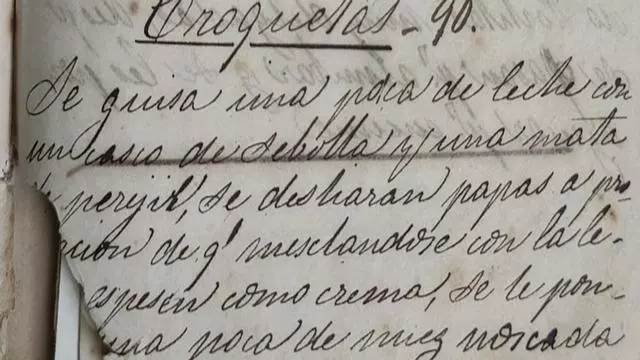 Croquetas - 90.
Se guisa una poca de leche con
un casco de sebolla y una mata
perejil, se desharan papas a pro
cion de q' mesclandose con la le-
espesen como crema, se le pon-
una poca de nuez noscada